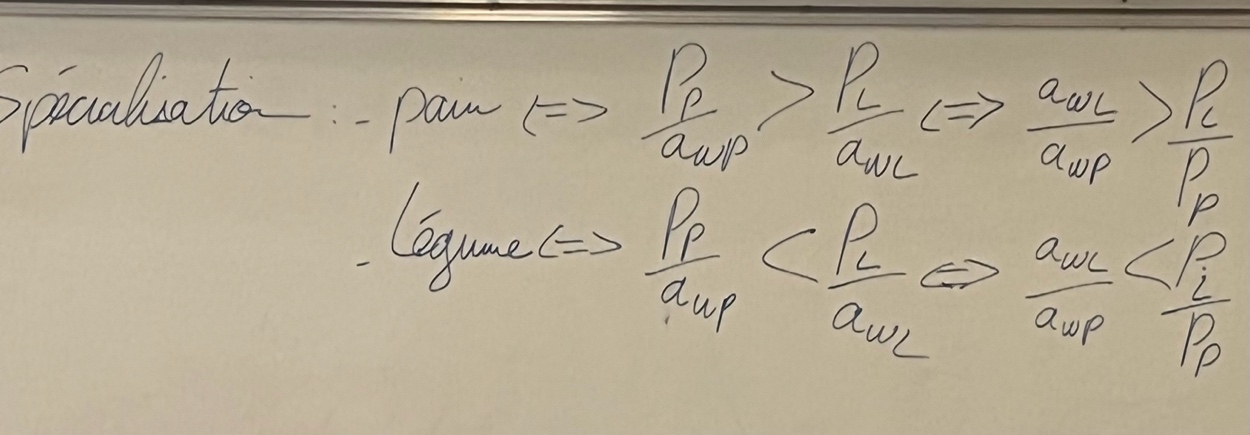 Spécialisation : - pain <=> P_P / a_WP > P_L / a_WL <=> a_WL / a_WP > P_L / P_P
- légume <=> P_P / a_WP < P_L / a_WL <=> a_WL / a_WP < P_L / P_P